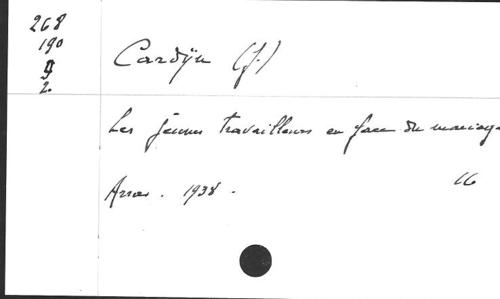 268
190
9
2.
Cardijn (J.)
Les jeunes travailleurs en face du mariage
Arras. 1938.
16